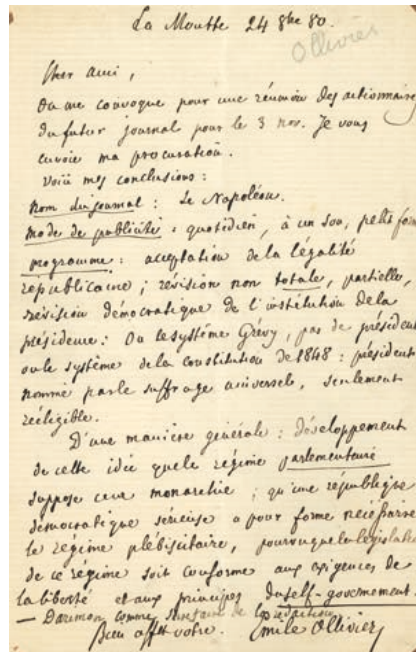 La Moutte 24 8bre 80.
Ollivier
Cher ami,
On me convoque pour une réunion des actionnaires
du futur journal pour le 3 nov. Je vous
envoie ma procuration.
Voici mes conclusions :
nom du journal : Le Napoléon.
mode de publicité : quotidien, à un sou, petit form
programme : acceptation de la légalité
républicaine ; révision non totale, partielle,
révision démocratique de l'institution de la
présidence : Ou le système Grévy, pas de président
ou le système de la constitution de 1848 : président
nommé par le suffrage universel, seulement
rééligible.
D'une manière générale : développement
de cette idée que le régime parlementaire
suppose une monarchie ; qu'une république
démocratique sérieuse a pour forme nécessaire
le régime plébiscitaire, pourvu que la législation
de ce régime soit conforme aux exigences de
la liberté et aux principes du self-governement.
— Darimon comme secrétaire de la rédaction.
Bien aff. votre. Emile Ollivier